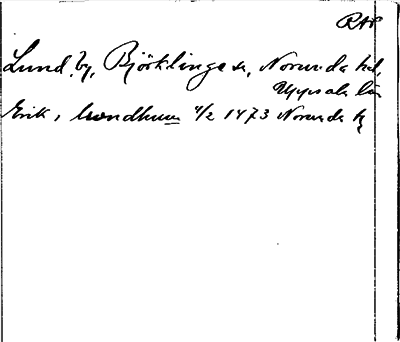 RAP
Lund, by, Björklinge sn, Norunda hd,
Uppsala län
Erik, 4/2 1473 Norunda